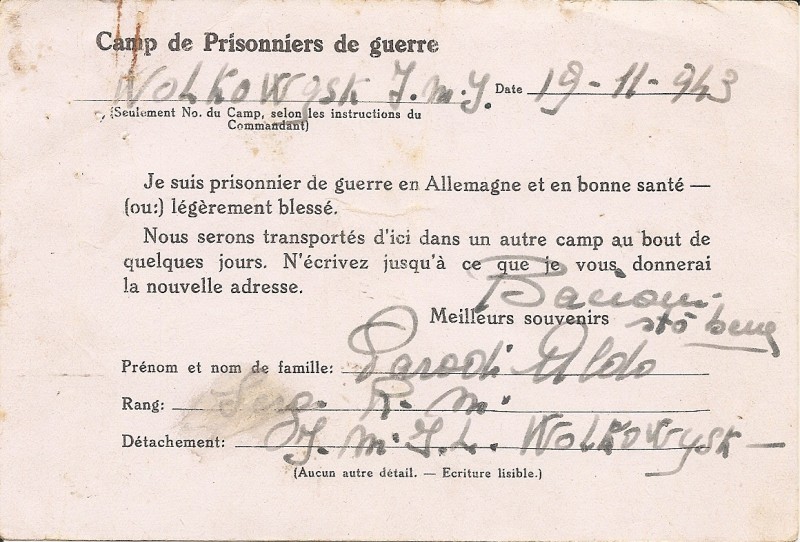 Camp de Prisonniers de guerre
Wolkowysk I.M.I. Date 19-11-943
(Seulement No. du Camp, selon les instructions du
Commandant)
Je suis prisonnier de guerre en Allemagne et en bonne santé —
(ou:) légèrement blessé.
Nous serons transportés d'ici dans un autre camp au bout de
quelques jours. N'écrivez jusqu'à ce que je vous donnerai
la nouvelle adresse.
Bacioni
Meilleurs souvenirs stò bene
Prénom et nom de famille: Parodi Aldo
Rang: Serg. R. M.
Détachement: I.M.I.L. Wolkowysk —
(Aucun autre détail. — Ecriture lisible.)